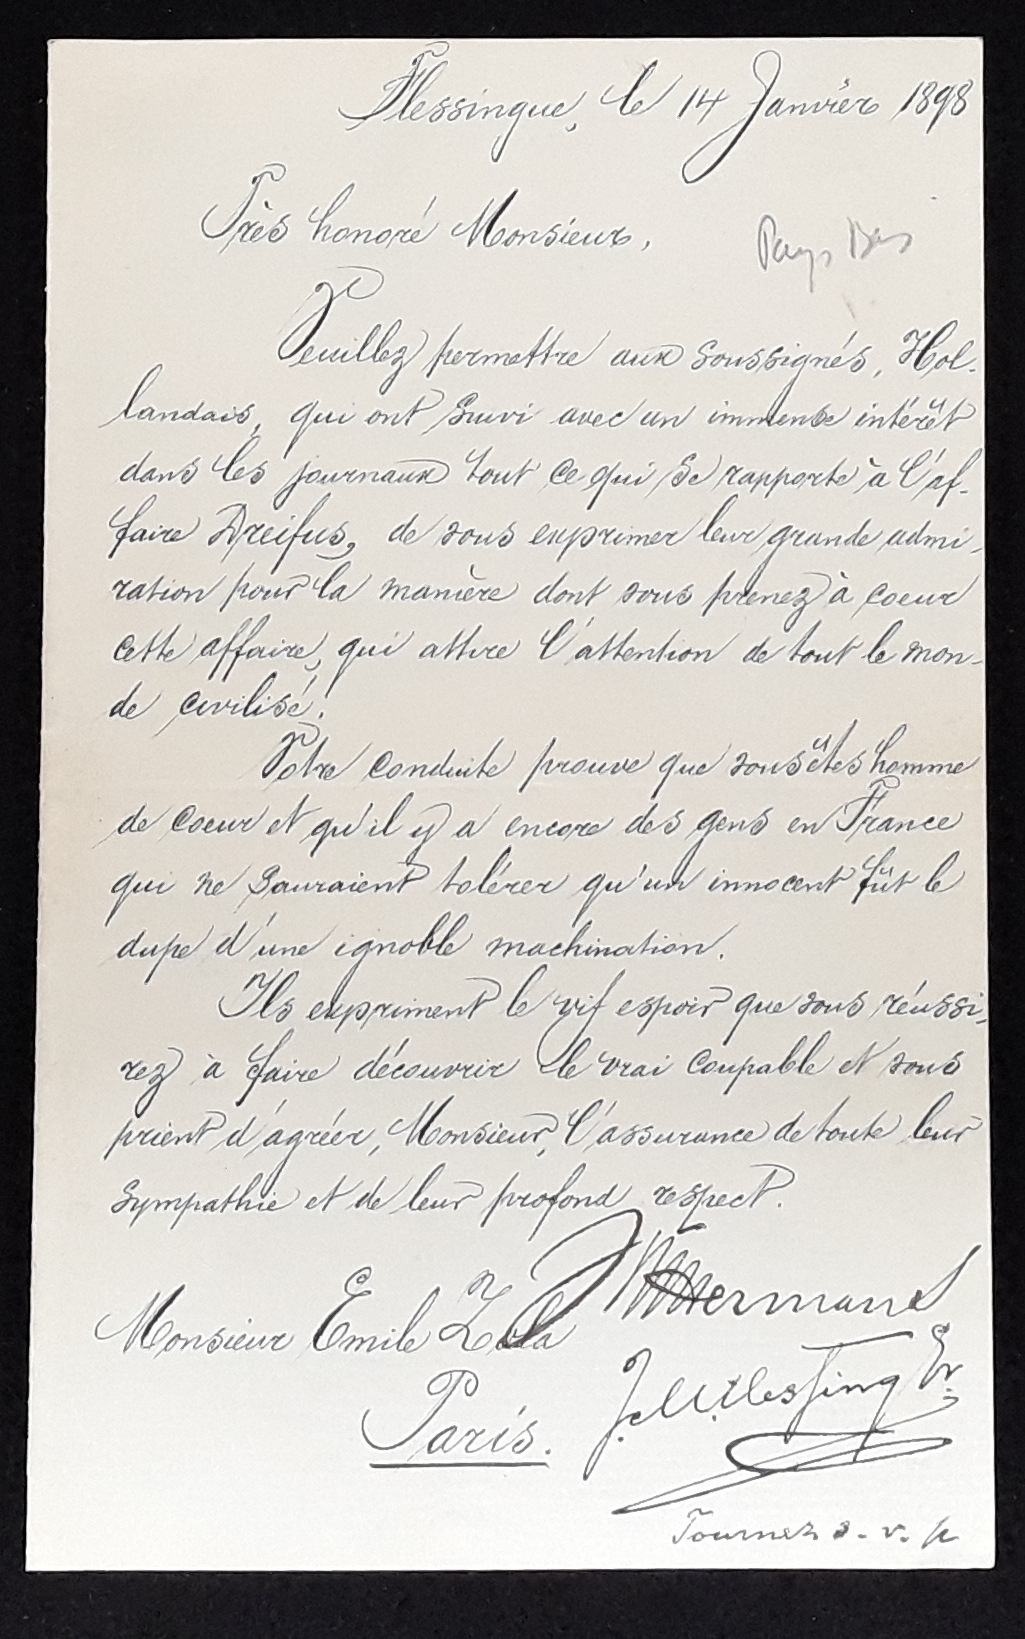 Flessingue, le 14 Janvier 1898
Très honoré Monsieur,
Pays Bas
Veuillez permettre aux soussignés, Hol-
landais, qui ont suivi avec un immense intérêt
dans les journaux tout ce qui se rapporte à l'af-
faire Dreifus, de vous exprimer leur grande admi-
ration pour la manière dont vous prenez à coeur
cette affaire, qui attire l'attention de tout le mon-
de civilisé.
Votre conduite prouve que vous êtes homme
de coeur et qu'il y a encore des gens en France
qui ne sauraient tolérer qu'un innocent fût le
dupe d'une ignoble machination.
Ils expriment le vif espoir que vous réussi-
rez à faire découvrir le vrai coupable et vous
prient d'agréer, Monsieur, l'assurance de toute leur
sympathie et de leur profond respect.
Monsieur Emile Zola
Paris.
Tournez s. v. p